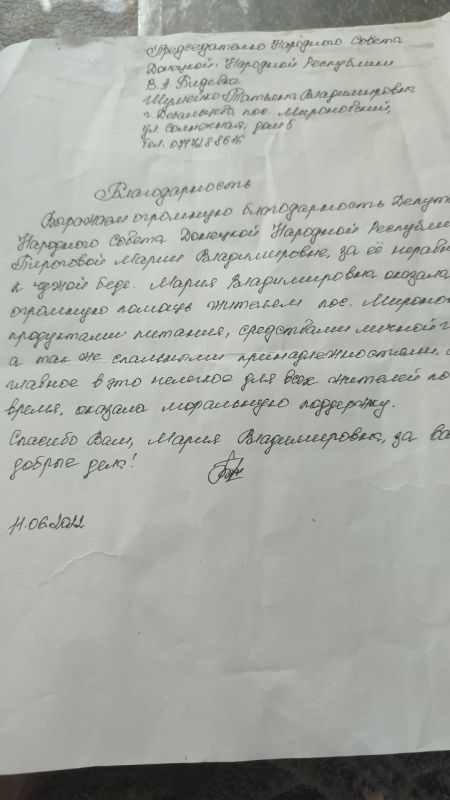 Председателю Народного Совета
Донецкой Народной Республики
В. А. Бидёвка
Шумейко Татьяна Владимировна
г. Дебальцево пос. Мироновский,
ул. Солнежная, дом 5
тел. 0717288616
Благодарность
Выражаем огромную благодарность Депут
Народного Совета Донецкой Народной Республи
Пироговой Марии Владимировне, за её неравн
к чужой беде. Мария Владимировна оказала
огромную помощь жителем пос. Мироно
продуктами питания, средствами личной г
а так же спальными принадлежностями.
главное в это нелегкое для всех жителей по
время, оказала моральную поддержку.
Спасибо Вам, Мария Владимировна, за ва
добрые дела!
11.06.2022